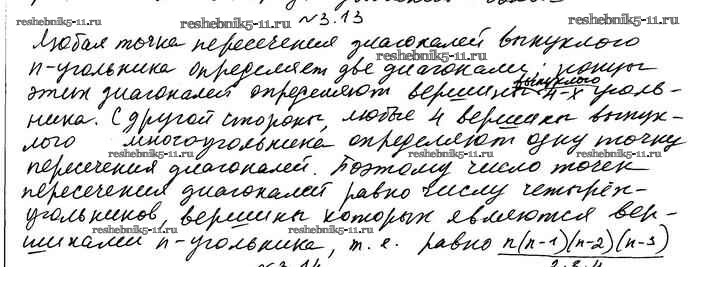 №3.13
Любая точка пересечения диагоналей выпуклого
n-угольника определяет две диагонали; концы
этих диагоналей определяют вершины выпуклого 4-х уголь-
ника. С другой стороны, любые 4 вершины выпук-
лого многоугольника определяют одну точку
пересечения диагоналей. Поэтому число точек
пересечения диагоналей равно числу четырёх-
угольников, вершины которых являются вер-
шинами n-угольника, т.е. равно n(n-1)(n-2)(n-3)
2·3·4
№3.14
reshebnik5-11.ru
reshebnik5-11.ru
reshebnik5-11.ru
reshebnik5-11.ru
reshebnik5-11.ru
reshebnik5-11.ru
reshebnik5-11.ru
reshebnik5-11.ru
reshebnik5-11.ru
reshebnik5-11.ru